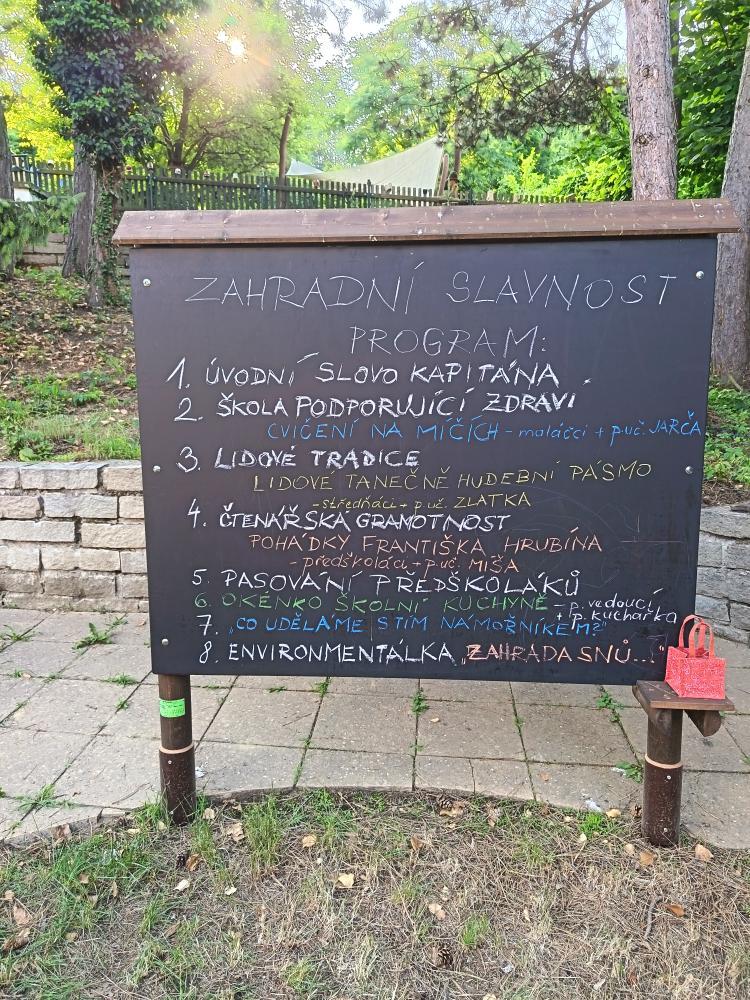 ZAHRADNÍ SLAVNOST
PROGRAM:
1. ÚVODNÍ SLOVO KAPITÁNA
2. ŠKOLA PODPORUJÍCÍ ZDRAVÍ
CVIČENÍ NA MÍČÍCH - maláčci + p.uč. JARČA
3. LIDOVÉ TRADICE
LIDOVÉ TANEČNĚ HUDEBNÍ PÁSMO
- středňáci + p.uč. ZLATKA
4. ČTENÁŘSKÁ GRAMOTNOST
POHÁDKY FRANTIŠKA HRUBÍNA
- předškoláci + p.uč. MÍŠA
5. PASOVÁNÍ PŘEDŠKOLÁKŮ
6. OKÉNKO ŠKOLNÍ KUCHYNĚ - p. vedoucí
+ p. kuchařka
7. „CO UDĚLÁME S TÍM NÁMOŘNÍKEM?"
8. ENVIRONMENTÁLKA „ZAHRADA SNŮ..."